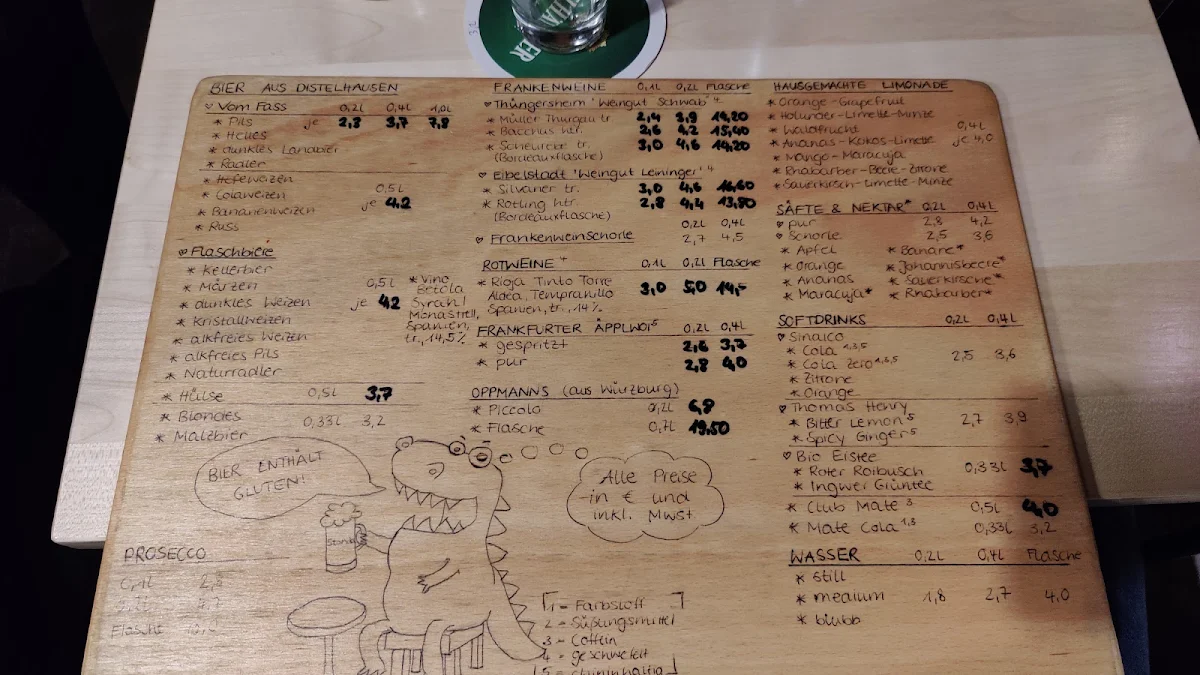 BIER AUS DISTELHAUSEN
♡ Vom Fass 0,2L 0,4L 1,0L
* Pils je 2,3 3,7 7,8
* Helles
* dunkles Landbier
* Radler
* Hefeweizen
* Colaweizen 0,5L
* Bananenweizen je 4,2
* Russ
♡ Flaschbiere
* Kellerbier
* Märzen 0,5L
* dunkles Weizen je 4,2
* Kristallweizen
* alkfreies Weizen
* alkfreies Pils
* Naturradler
* Hülse 0,5L 3,7
* Blondes 0,33L 3,2
* Malzbier
BIER ENTHÄLT
GLUTEN!
PROSECCO
0,1L
Flasche
FRANKENWEINE 0,1L 0,2L Flasche
♡ Thüngersheim 'Weingut Schwab' 4
* Müller Thurgau tr. 2,4 3,9 14,20
* Bacchus htr. 2,6 4,2 15,40
* Scheurebe tr. 3,0 4,6 14,20
(Bordeauxflasche)
♡ Eibelstadt 'Weingut Leininger' 4
* Silvaner tr. 3,0 4,6 16,60
* Rotling htr. 2,8 4,4 13,80
(Bordeauxflasche)
0,2L 0,4L
♡ Frankenweinschorle 2,7 4,5
ROTWEINE 4 0,1L 0,2L Flasche
* Rioja Tinto Torre
Aldea, Tempranillo 3,0 5,0 14,-
Spanien, tr., 14%
* Vino
Betola
Syrah/
Monastrell,
Spanien,
tr., 14,5%
FRANKFURTER ÄPPLWOI 5 0,2L 0,4L
* gespritzt 2,6 3,7
* pur 2,8 4,0
OPPMANNS (aus Würzburg)
* Piccolo 0,2L 6,9
* Flasche 0,7L 19,50
Alle Preise
in € und
inkl. Mwst.
1 = Farbstoff
2 = Süßungsmittel
3 = Coffein
4 = geschwefelt
5 = chininhaltig
HAUSGEMACHTE LIMONADE
* Orange-Grapefruit
* Holunder-Limette-Minze
* Waldfrucht 0,4L
* Ananas-Kokos-Limette je 4,0
* Mango-Maracuja
* Rhabarber-Beere-Zitrone
* Sauerkirsch-Limette-Minze
SÄFTE & NEKTAR* 0,2L 0,4L
♡ pur 2,8 4,2
♡ Schorle 2,5 3,6
* Apfel * Banane*
* Orange * Johannisbeere*
* Ananas * Kirsche*
* Maracuja* * Rhabarber*
SOFTDRINKS 0,2L 0,4L
♡ Sinalco
* Cola 1,3,5
* Cola Zero 1,3,5 2,5 3,6
* Zitrone
* Orange
♡ Thomas Henry
* Bitter Lemon 5 2,7 3,9
* Spicy Ginger 5
♡ Bio Eistee
* Roter Roibusch 0,33L 3,7
* Ingwer Grüntee
* Club Mate 3 0,5L 4,0
* Mate Cola 1,3 0,33L 3,2
WASSER 0,2L 0,4L Flasche
* still
* medium 1,8 2,7 4,0
* blubb